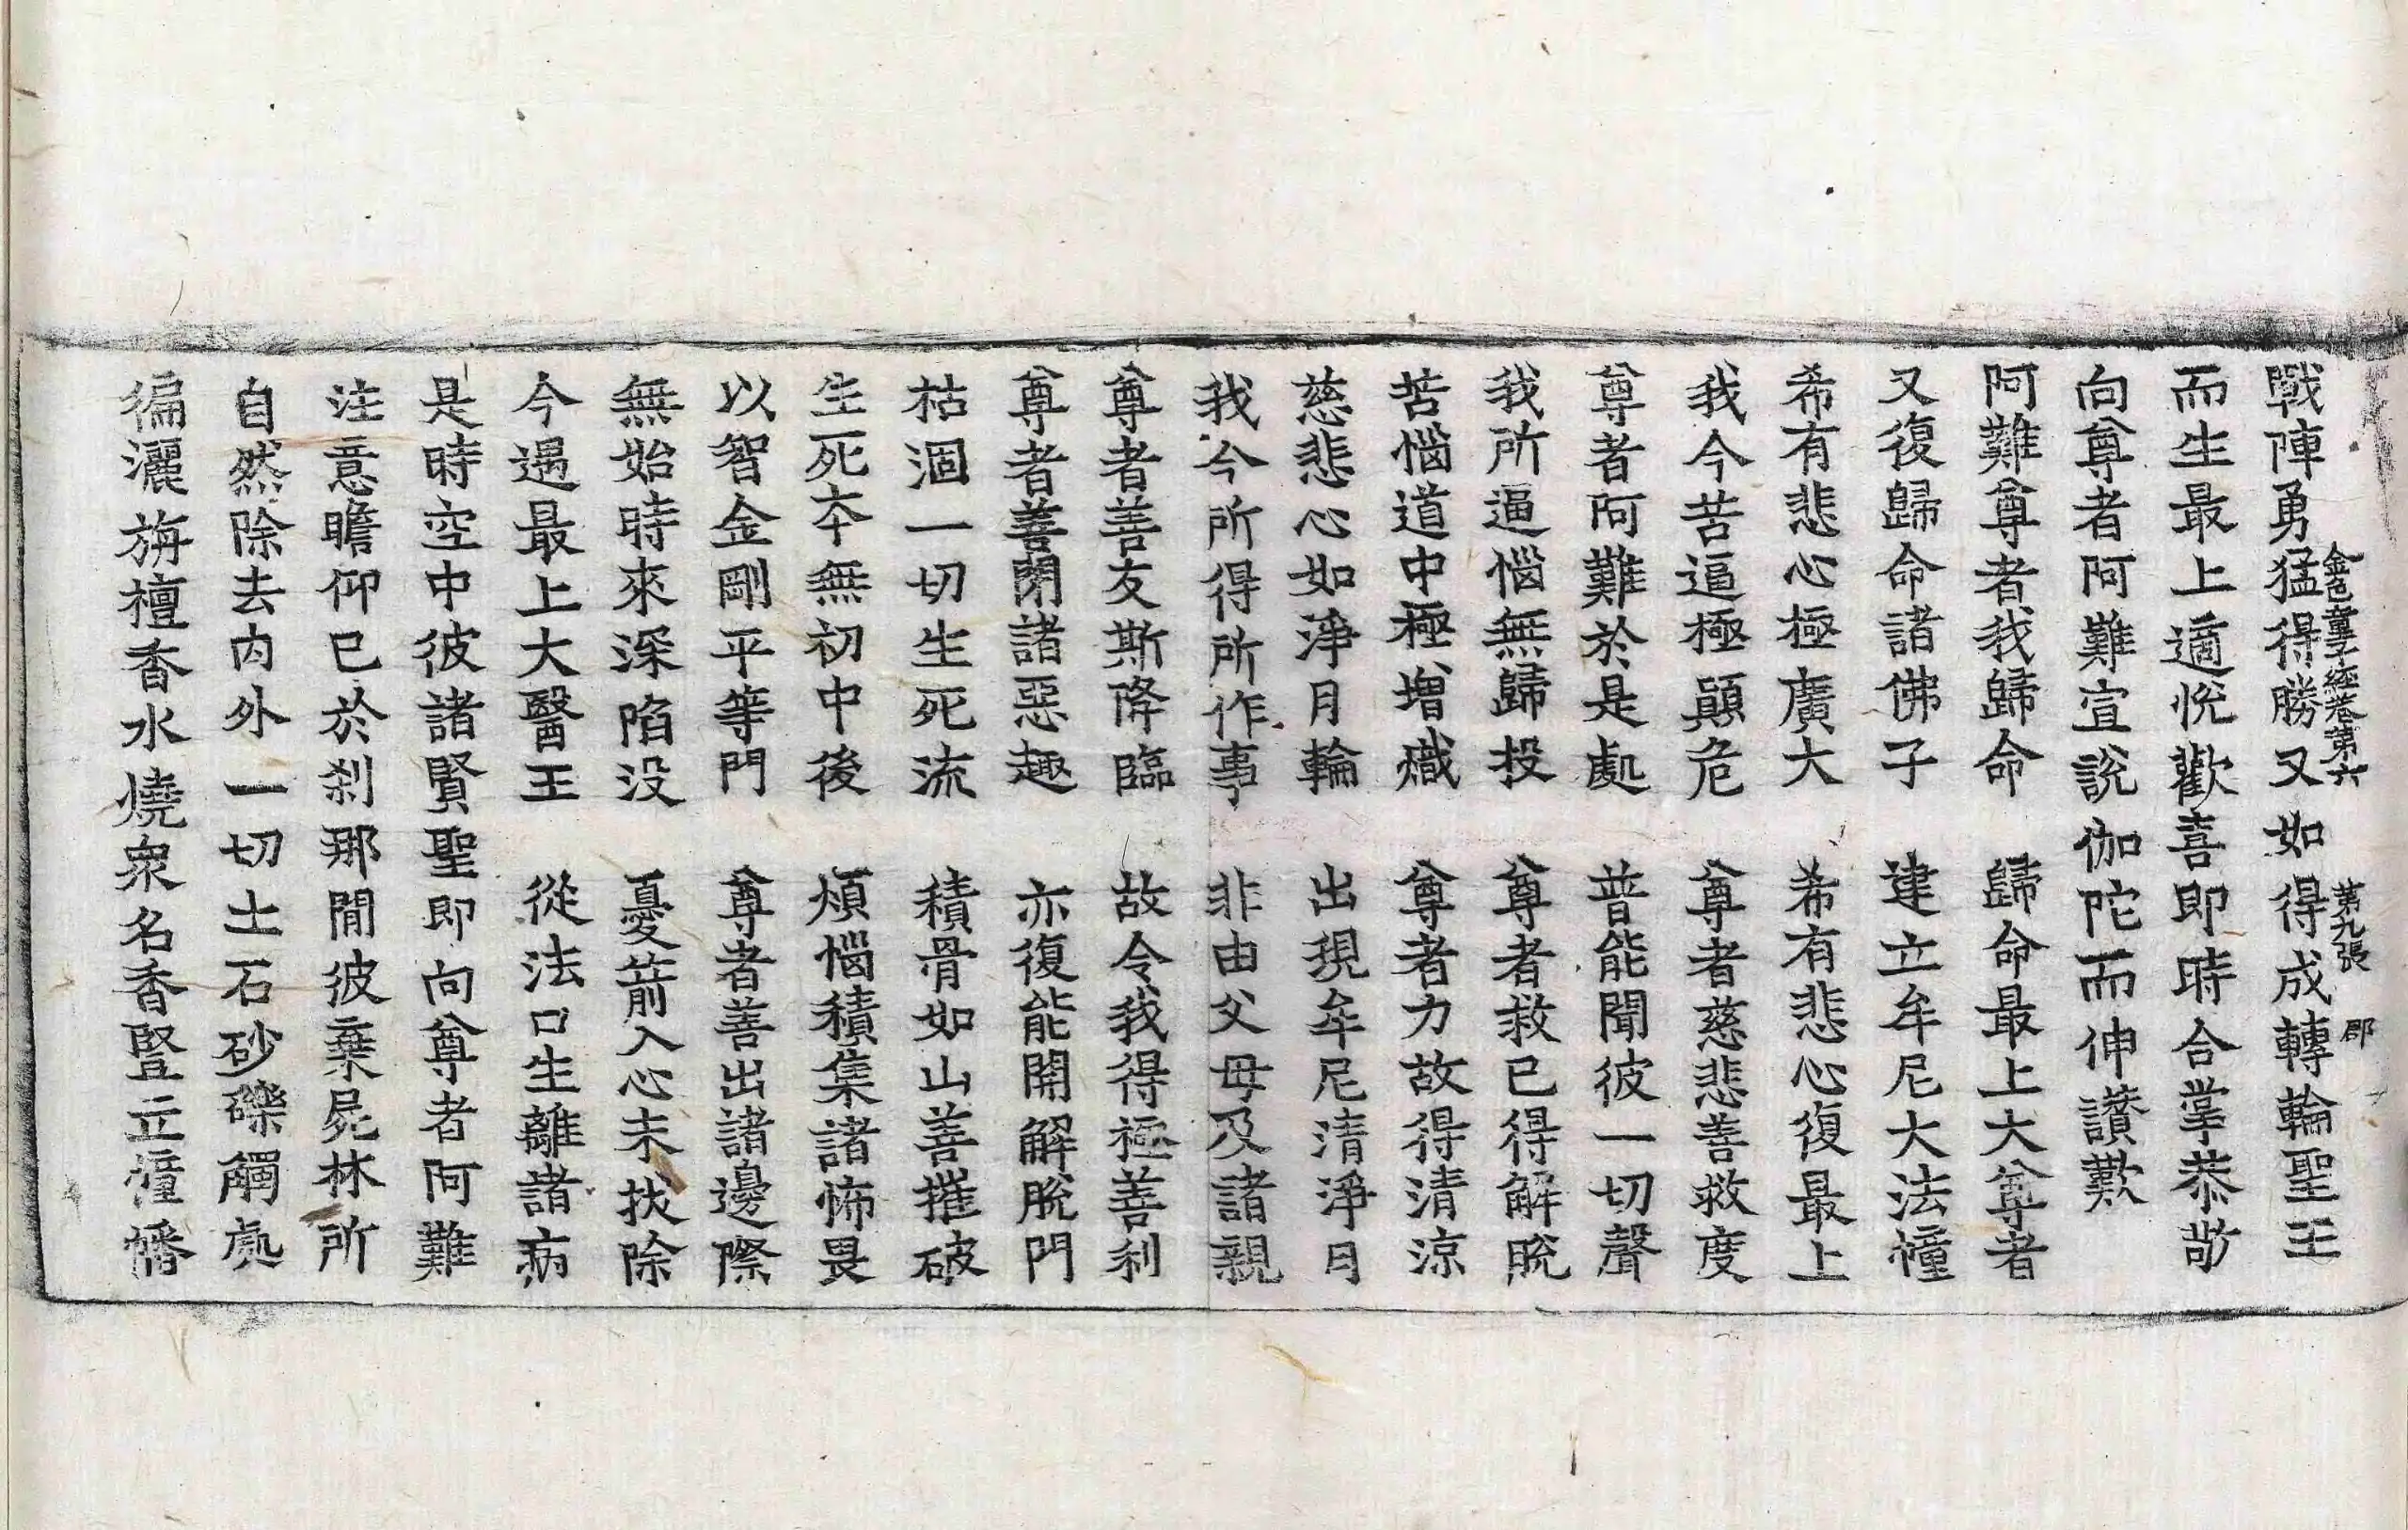 戰陣勇猛得勝又如得成轉輪聖王
金色童子經卷第六 第九張 郡
而生最上適悅歡喜即時合掌恭敬
向尊者阿難宣說伽陀而伸讚歎
阿難尊者我歸命 歸命最上大尊者
又復歸命諸佛子 建立牟尼大法幢
希有悲心極廣大 希有悲心復最上
我今苦逼極顛危 尊者慈悲善救度
尊者阿難於是處 普能聞彼一切聲
我所逼惱無歸投 尊者救已得解脫
苦惱道中極增熾 尊者力故得清涼
慈悲心如淨月輪 出現牟尼清淨日
我今所得所作事 非由父母及諸親
尊者善友斯降臨 故令我得極善利
尊者善閉諸惡趣 亦復能開解脫門
枯涸一切生死流 積骨如山善摧破
生死本無初中後 煩惱積集諸怖畏
以智金剛平等門 尊者善出諸邊際
無始時來深陷没 憂箭入心未拔除
今遇最上大醫王 從法口生離諸病
是時空中彼諸賢聖即向尊者阿難
注意瞻仰已於刹那間彼棄屍林所
自然除去内外一切土石砂礫觸處
徧灑旃檀香水燒衆名香豎立幢幡